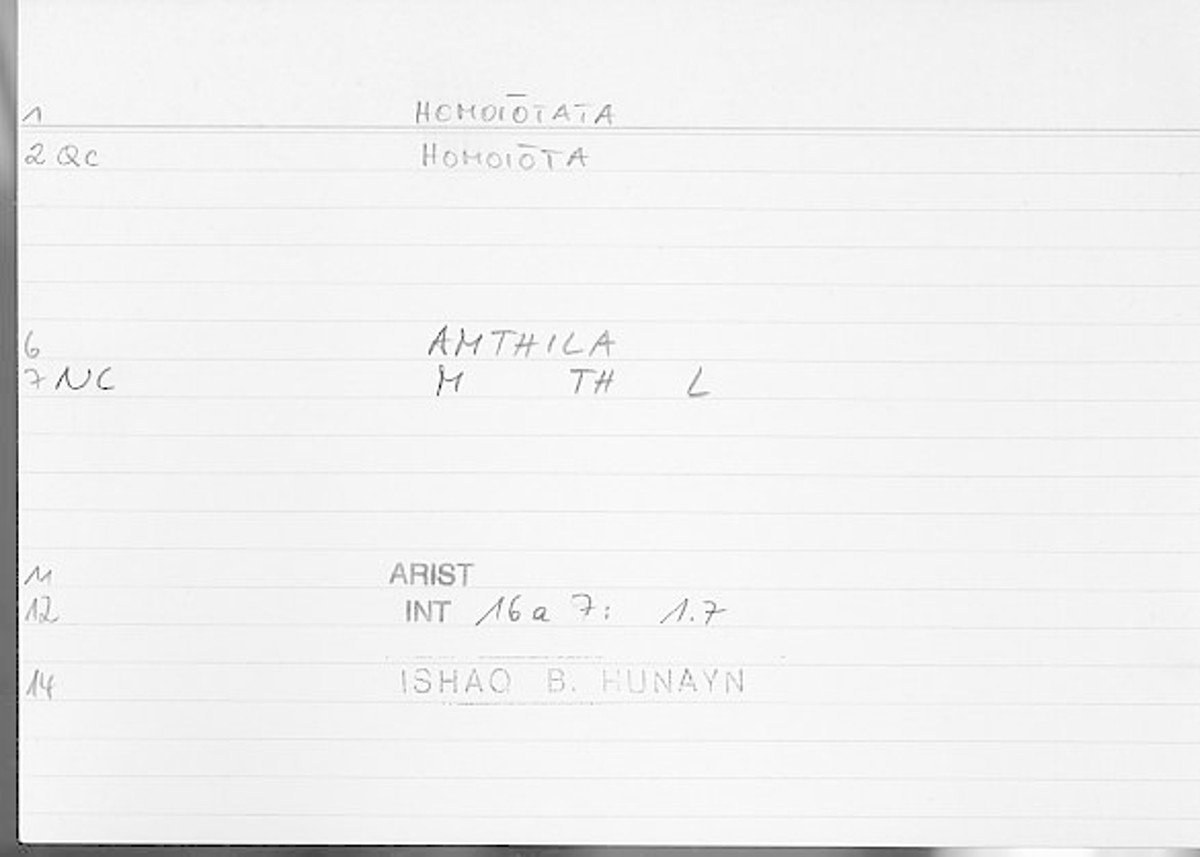 1 HOMOIŌTATA
2 QC HOMOIŌTA
6 AMTHILA
7 NC M TH L
11 ARIST
12 INT 16a 7: 1.7
14 ISHAQ B. HUNAYN